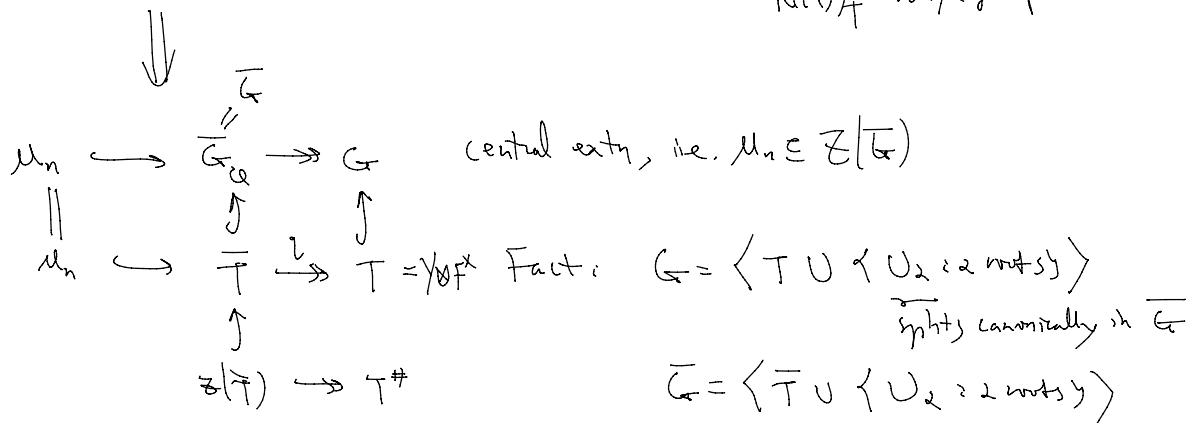 ⇓
G̅
μ_n ↪ G̅_Q ↠ G central extn, i.e. μ_n ⊆ Z(G̅)
μ_n ↪ T̅ ↠ T = Y⊗F^× Fact: G = ⟨T ∪ {U_α : α roots}⟩
splits canonically in G̅
Z(T̅) ↠ T^# G̅ = ⟨T̅ ∪ {U_α : α roots}⟩